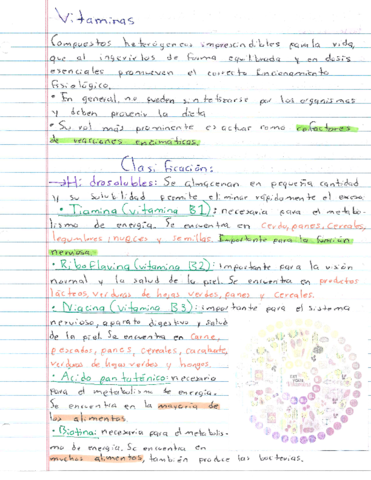 Vitaminas
Compuestos heterógeneos imprescindibles para la vida,
que al ingerirlos de forma equilibrada y en dosis
esenciales promueven el correcto funcionamiento
fisiológico.
• En general, no pueden sintetizarse por los organismos
y deben provenir la dieta
• Su rol más prominente es actuar como cofactores
de reacciones enzimáticas.
Clasificación:
→Hidrosolubles: Se almacenan en pequeña cantidad
y su solubilidad permite eliminar rápidamente el exceso
• Tiamina (vitamina B1): necesaria para el metabo-
lismo de energía. Se encuentra en Cerdo, panes, Cereales,
legumbres, nueces y semillas. Importante para la función
nerviosa.
• Riboflavina (vitamina B2): importante para la visión
normal y la salud de la piel. Se encuentra en productos
lácteos, verduras de hojas verdes, panes y cereales.
• Niacina (vitamina B3): importante para el sistema
nervioso, aparato digestivo y salud
de la piel. Se encuentra en Carne,
pescados, panes, cereales, cacahuate,
verduras de hojas verdes y hongos.
• Acido pantoténico: necesario
para el metabolismo de energía.
Se encuentra en la mayoría de
los alimentos.
• Biotina: necesaria para el metabolis-
mo de energía. Se encuentra en
muchos alimentos, también produce las bacterias.